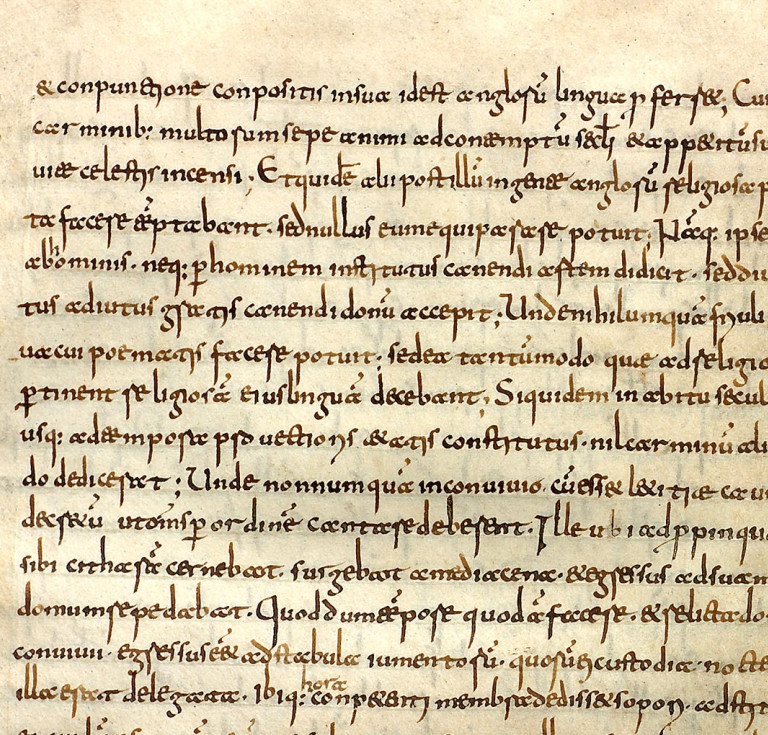 & conpunctione conpositis in sua id est anglorū lingua ꝓferret; Cui
carminib; multorum sepe animi ad contemptū sęcłi & appetitūs
uitae celestis incensi; Et quidē alii post illū in gente anglorū religiosa p
ta facere tēptabant. sed nullus eum equiparare potuit; Nāq; ipse
ab hominis. neq; ꝑ hominem institutus canendi artem didicit. sed diu
tus adiutus gratis canendi donū accepit; Unde nihil umquā friuoli
uacui poematis facere potuit; sed ea tantūmodo quae ad religio
ꝑtinent religiosā eius linguā decebant; Siquidem in abitu secul
usq; ad tempora prouectioris &atis constitutus. nil carminū ali
do dedicerat; Unde nonnumquā in conuiuio cū ess& l&itiae cau
decretū ut omīs ꝑ ordinē cantare deberent. Ille ubi adꝓpinqua
sibi citharā cernebat. surgebat a media cena. & egressus ad suam
domum repedabat. Quod dum tēpore quodā facer&. & relicta do
conuiuii egressus eēt ad stabula iumentorū. quorū ei custodia nocte
illa erat delegata. Ibiq; hora conpetenti membra dediss& sopori. adstit